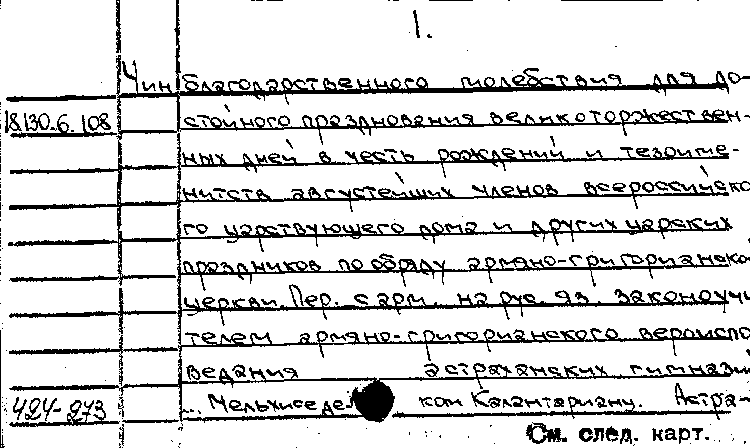 1.
Чин благодарственного молебствия для до-
18130.6.108 стойного празднования великоторжествен-
ных дней в честь рождений и тезоиме-
нитств августейших членов всероссийско
го царствующего дома и других царских
праздников по обряду армяно-григорианской
церкви. Пер. с арм. на рус. яз. законоучи
телем армяно-григорианского вероиспо
ведания астраханских гимназий
424-273 ... Мельхиседе- ком Калантарианц. Астра-
См. след. карт.